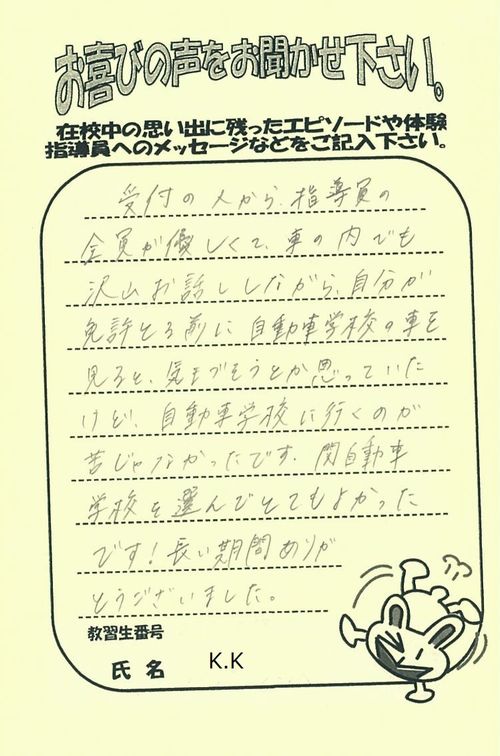 お喜びの声をお聞かせ下さい。
在校中の思い出に残ったエピソードや体験
指導員へのメッセージなどをご記入下さい。
受付の人から、指導員の
全員が優しくて、車の内でも
沢山お話ししながら、自分が
免許とる前に自動車学校の車を
見ると、気まづそうとか思っていた
けど、自動車学校に行くのが
苦じゃなかったです。関自動車
学校を選んでとてもよかった
です!長い期間ありが
とうございました。
教習生番号
氏名 K.K